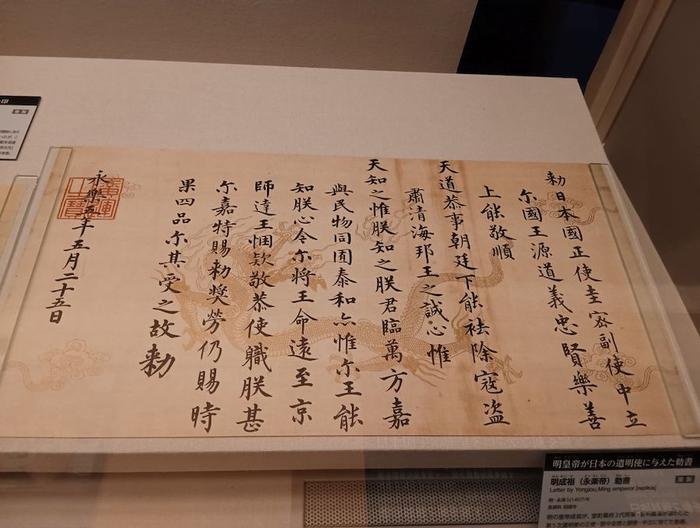 勅日本國正使圭密副使中立
尓國王源道義忠賢樂善
上能敬順
天道恭事朝廷下能袪除寇盗
肅清海邦王之誠心惟
天知之惟朕知之朕君臨萬方嘉
與民物同囿泰和亦惟尓王能
知朕心今尓將王命遠至京
師達王悃欵敬恭使職朕甚
尓嘉特賜勅奬勞仍賜時
果四品尓其受之故勅
永樂五年五月二十五日
廣運之寶
明皇帝が日本の遣明使に与えた勅書
明成祖（永楽帝）勅書
Letter by Yongle, Ming emperor [replica]